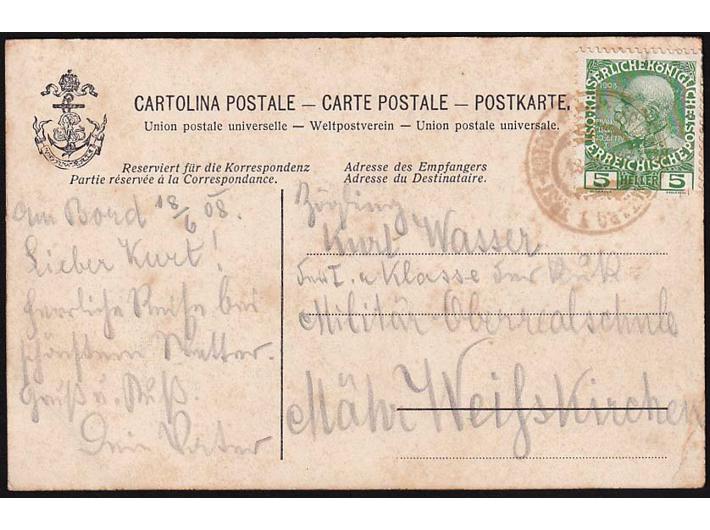 CARTOLINA POSTALE — CARTE POSTALE — POSTKARTE.
Union postale universelle — Weltpostverein — Union postale universale.
Reserviert für die Korrespondenz
Partie réservée à la Correspondance.
Am Bord 18/6 08.
Lieber Kurt!
Herrliche Reise bei
schönstem Wetter.
Gruß u. Kuß.
Dein Vater
Adresse des Empfangers
Adresse du Destinataire.
Zögling
Kurt Wasser
der I. a Klasse der K.u.K.
Militär-Oberrealschule
Mähr Weißkirchen
KAISERLICHE KÖNIGLICHE
ÖSTERREICHISCHE
1908
5 HELLER 5